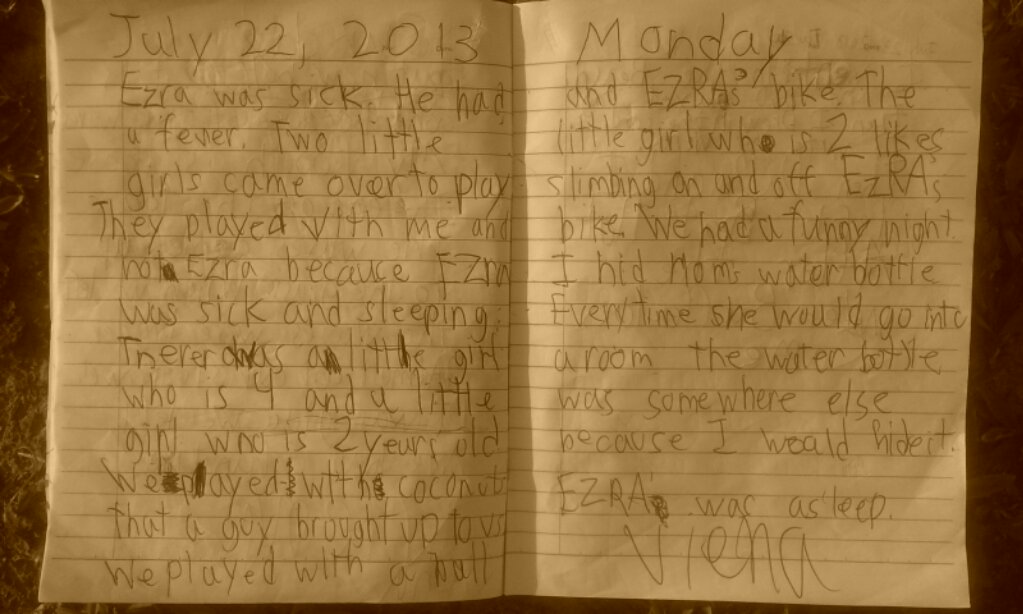 July 22, 2013
Ezra was sick. He had
a fever. Two little
girls came over to play
They played with me and
not Ezra because Ezra
was sick and sleeping.
There was a little girl
who is 4 and a little
girl who is 2 years old
We played with coconut
that a guy brought up to us
We played with a ball
Monday
and EZRA's bike. The
little girl who is 2 likes
slimbing on and off EzRA's
bike. We had a funny night.
I hid Moms water bottle
Every time she would go into
a room the water bottle
was somewhere else
because I would hide it.
EZRA was asleep.
Viena